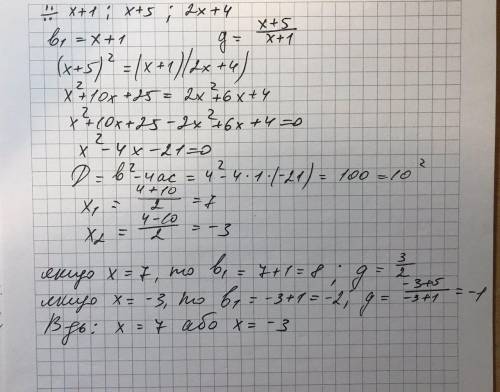 ∺ x+1 ; x+5 ; 2x+4
b₁ = x+1 g = \frac{x+5}{x+1}
(x+5)² = (x+1)(2x+4)
x²+10x+25 = 2x²+6x+4
x²+10x+25-2x²+6x+4=0
x²-4x-21=0
D = b²-4ac = 4²-4·1·(-21) = 100 = 10²
x₁ = \frac{4+10}{2} = 7
x₂ = \frac{4-10}{2} = -3
якщо x=7, то b₁ = 7+1=8 ; g = \frac{3}{2}
якщо x=-3, то b₁ = -3+1=-2, g = \frac{-3+5}{-3+1} = -1
Відь: x = 7 або x = -3